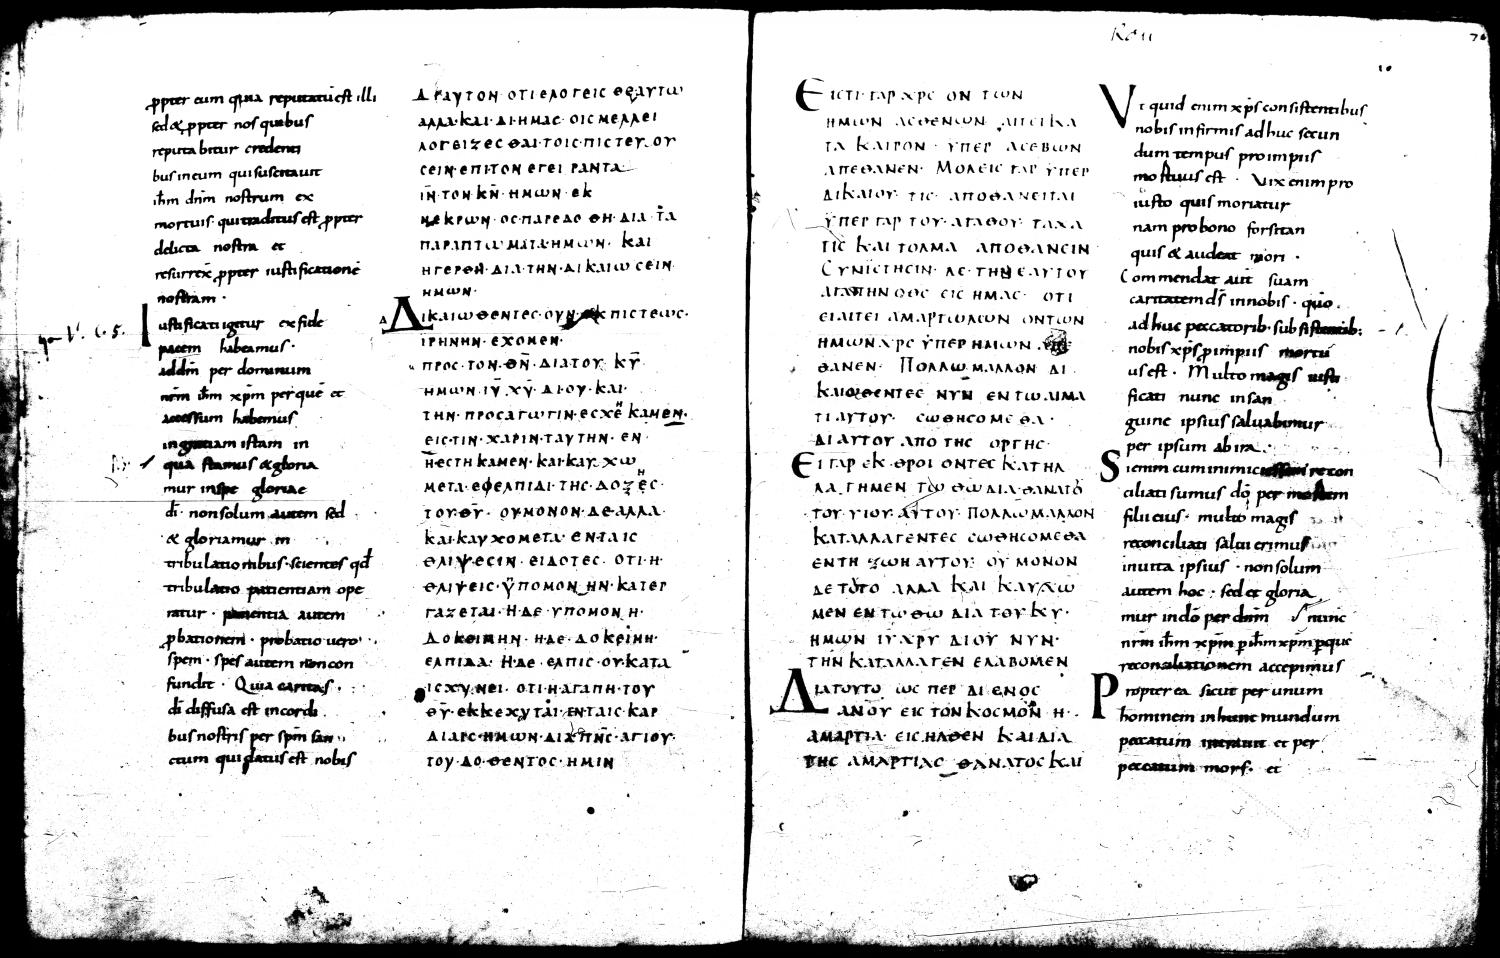 ꝓpter eum quia reputatū est illi
sed & ꝓpter nos quibus
reputabitur credenti
bus in eum qui suscitauit
ihm dnm nostrum ex
mortuis· qui traditus est ꝓpter
delicta nostra et
resurrex ꝓpter iustificationē
nostram ·
Iustificati igitur ex fide
pacem habeamus ·
ad dm per dominum
nrm ihm xpm per quē et
accessum habemus
in gratiam istam in
qua stamus & gloria
mur in spe gloriae
di · non solum autem sed
& gloriamur in
tribulationibus · scientes qd
tribulatio patientiam ope
ratur · patientia autem
ꝓbationem · probatio uero
spem · spes autem non con
fundit · Quia caritas ·
di diffusa est in cordi
bus nostris per spm san
ctum qui datus est nobis
ΔΡΑΥΤΟΝ· ΟΤΙ ΕΛΟΓΕΙC ΘΕ ΑΥΤω
ΑΛΛΑ·ΚΑΙ·ΔΙ·ΗΜΑC· ΟΙC ΜΕΛΛΕΙ
ΛΟΓΕΙΖΕCΘΑΙ·ΤΟΙC·ΠΙCΤΕΥ·ΟΥ
CΕΙΝ·ΕΠΙ ΤΟΝ ΕΓΕΙ ΡΑΝΤΑ
ΙΝ·ΤΟΝ·ΚΝ·ΗΜωΝ·ΕΚ
ΝΕΚΡωΝ·ΟC·ΠΑΡΕΔΟ ΘΗ·ΔΙΑ·ΤΑ
ΠΑΡΑΠΤωΜΑΤΑ·ΗΜωΝ· ΚΑΙ
ΗΓΕΡΘΗ·ΔΙΑ·ΤΗΝ·ΔΙΚΑΙωCΕΙΝ·
ΗΜωΝ·
ΔΙΚΑΙωΘΕΝΤΕC·ΟΥΝ·ΕΚ ΠΙCΤΕωC·
ΙΡΗΝΗΝ·ΕΧΟΜΕΝ·
ΠΡΟC·ΤΟΝ·ΘΝ· ΔΙΑ ΤΟΥ· ΚΥ
ΗΜωΝ·ΙΥ·ΧΥ· ΔΙ·ΟΥ·ΚΑΙ·
ΤΗΝ·ΠΡΟCΑΓωΓΙΝ·ΕCΧΕ ΚΑΜΕΝ·
ΕΙC·ΤΙΝ·ΧΑΡΙΝ·ΤΑΥΤΗΝ·ΕΝ
Η·ΕCΤΗΚΑΜΕΝ·ΚΑΙ·ΚΑΥΧω
ΜΕΤΑ·ΕΦΕΛΠΙΔΙ·ΤΗC·ΔΟΞΕC·
ΤΟΥ·ΘΥ· ΟΥ·ΜΟΝΟΝ·ΔΕ·ΑΛΛΑ·
ΚΑΙ·ΚΑΥΧΟΜΕΤΑ·ΕΝ·ΤΑΙC
ΘΛΙΨΕCΙΝ· ΕΙΔΟΤΕC· ΟΤΙ·Η·
ΘΛΙΨΕΙC·ΫΠΟΜΟΝ ΗΝ·ΚΑΤΕΡ
ΓΑΖΕΤΑΙ·Η·ΔΕ·ΥΠΟΜΟΝ Η·
ΔΟΚΕΙΜΗΝ·Η·ΔΕ·ΔΟΚΕΙΜΗ·
ΕΛΠΙΔΑ· Η·ΔΕ·ΕΛΠΙC·ΟΥ·ΚΑΤΑ
ΙCΧΥΝΕΙ· ΟΤΙ·Η·ΑΓΑΠΗ·ΤΟΥ
ΘΥ·ΕΚΚΕΧΥΤΑΙ·ΕΝ·ΤΑΙC·ΚΑΡ
ΔΙΑΙC·ΗΜωΝ·ΔΙΑ ΠΝC·ΑΓΙΟΥ·
ΤΟΥ·ΔΟ·ΘΕΝΤΟC·ΗΜΙΝ
ΕΙCΤΙ·ΓΑΡ ΧΡC ΟΝΤωΝ
ΗΜωΝ ΑCΘΕΝωΝ ΕΤΕΙ ΚΑ
ΤΑ ΚΑΙΡΟΝ· ΥΠΕΡ ΑCΕΒωΝ
ΑΠΕΘΑΝΕΝ· ΜΟΛΕΙC ΓΑΡ ΥΠΕΡ
ΔΙΚΑΙΟΥ· ΤΙC· ΑΠΟΘΑΝΕΙΤΑΙ
ΫΠΕΡ ΓΑΡ ΤΟΥ· ΑΓΑΘΟΥ· ΤΑΧΑ
ΤΙC ΚΑΙ ΤΟΛΜΑ ΑΠΟΘΑΝΕΙΝ
CΥΝΙCΤΗCΙΝ· ΔΕ·ΤΗΝ ΕΑΥΤΟΥ
ΑΓΑΠΗΝ Ο ΘC ΕΙC ΗΜΑC· ΟΤΙ
ΕΙ ΑΙΤΕΙ ΑΜΑΡΤωΛωΝ ΟΝΤωΝ
ΗΜωΝ ΧΡC ΫΠΕΡ ΗΜωΝ
ΘΑΝΕΝ· ΠΟΛΛω ΜΑΛΛΟΝ ΔΙ
ΚΑΙΟΘΕΝΤΕC ΝΥΝ ΕΝ Τω ΑΙΜΑ
ΤΙ ΑΥΤΟΥ· CωΘΗCΟΜΕΘΑ·
ΔΙ ΑΥΤΟΥ ΑΠΟ ΤΗC ΟΡΓΗC·
ΕΙ ΓΑΡ ΕΚ·ΘΡΟΙ ΟΝΤΕC ΚΑΤΗΛ
ΛΑ,ΓΗΜΕΝ Τω Θω ΔΙΑ·ΘΑΝΑΤΟ
ΤΟΥ·ΥΙΟΥ·ΑΥΤΟΥ· ΠΟΛΛω ΜΑΛΛΟΝ
ΚΑΤΑΛΛΑΓΕΝΤΕC CωΘΗCΟΜΕΘΑ
ΕΝ ΤΗ ΖωΗ ΑΥΤΟΥ· ΟΥ ΜΟΝΟΝ
ΔΕ ΤΟΥΤΟ ΑΛΛΑ ΚΑΙ ΚΑΥΧω
ΜΕΝ ΕΝ Τω Θω ΔΙΑ ΤΟΥ ΚΥ·
ΗΜωΝ ΙΥ ΧΡΥ ΔΙ ΟΥ ΝΥΝ·
ΤΗΝ ΚΑΤΑΛΛΑΓΕΝ ΕΛΑΒΟΜΕΝ
ΔΙΑ ΤΟΥΤΟ ωC ΠΕΡ ΔΙ ΕΝΟC
ΑΝΟΥ ΕΙC ΤΟΝ ΚΟCΜΟΝ Η·
ΑΜΑΡΤΙΑ· ΕΙCΗΛΘΕΝ ΚΑΙ ΔΙΑ
ΤΗC ΑΜΑΡΤΙΑC ΘΑΝΑΤΟC ΚΑΙ
Vt quid enim xps consistentibus
nobis infirmis adhuc secun
dum tempus pro impiis
mortuus est · Vix enim pro
iusto quis moriatur
nam pro bono forsitan
quis & audeat mori ·
Commendat aut suam
caritatem ds in nobis · quo
adhuc peccatorib· subsistentib:
nobis xps ꝓ impiis mortu
us est · Multo magis iusti
ficati nunc in san
guine ipsius saluabimur
per ipsum ab ira ·
Si enim cum inimici recon
ciliati sumus do per mortem
filii eius · multo magis
reconciliati salui erimus
in uita ipsius · non solum
autem hoc · sed et gloria
mur in do per dnm nunc
nrm ihm xpm ꝑ ihm xpm ꝑ que
reconsiliationem accepimus
Propter ea sicut per unum
hominem in hunc mundum
peccatum intrauit et per
peccatum mors · et